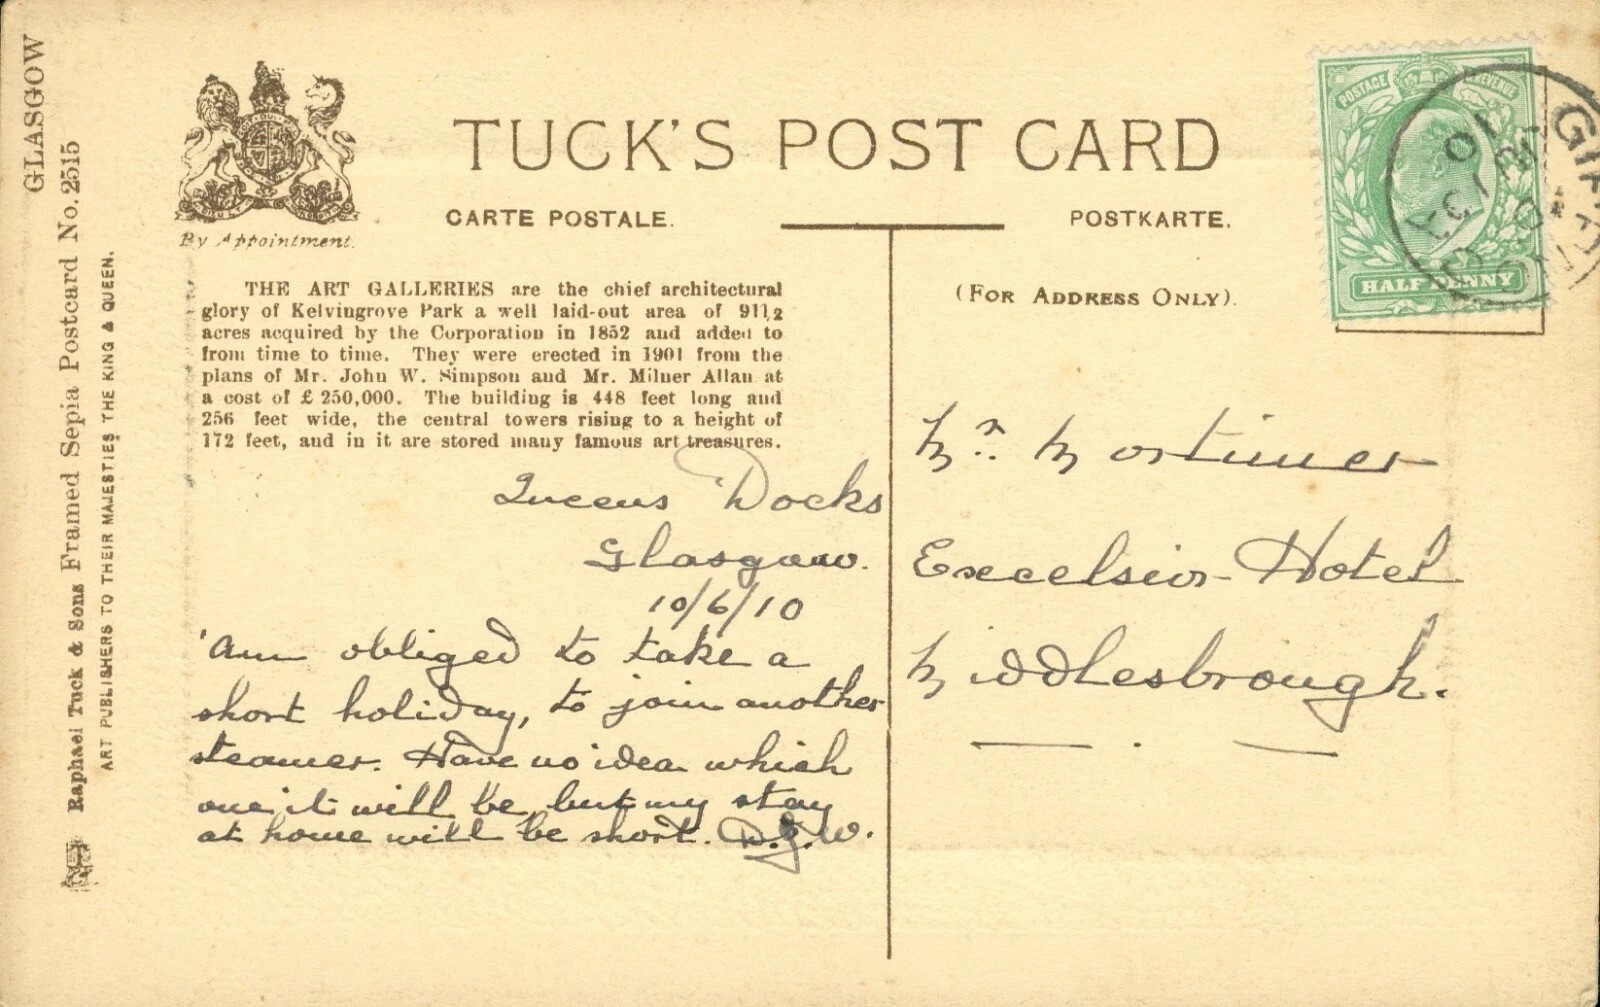 GLASGOW
Raphael Tuck & Sons Framed Sepia Postcard No. 2515
ART PUBLISHERS TO THEIR MAJESTIES THE KING & QUEEN.
By Appointment.
TUCK'S POST CARD
CARTE POSTALE.
POSTKARTE.
THE ART GALLERIES are the chief architectural
glory of Kelvingrove Park a well laid-out area of 911/2
acres acquired by the Corporation in 1852 and added to
from time to time. They were erected in 1901 from the
plans of Mr. John W. Simpson and Mr. Milner Allan at
a cost of £ 250,000. The building is 448 feet long and
256 feet wide, the central towers rising to a height of
172 feet, and in it are stored many famous art treasures.
Queens Docks
Glasgow.
10/6/10
'Am obliged to take a
short holiday, to join another
steamer. Have no idea which
one it will be, but my stay
at home will be short. D.J.W.
(FOR ADDRESS ONLY).
Mr. Mortimer
Excelsior Hotel
Middlesbrough.
POSTAGE & REVENUE
HALFPENNY